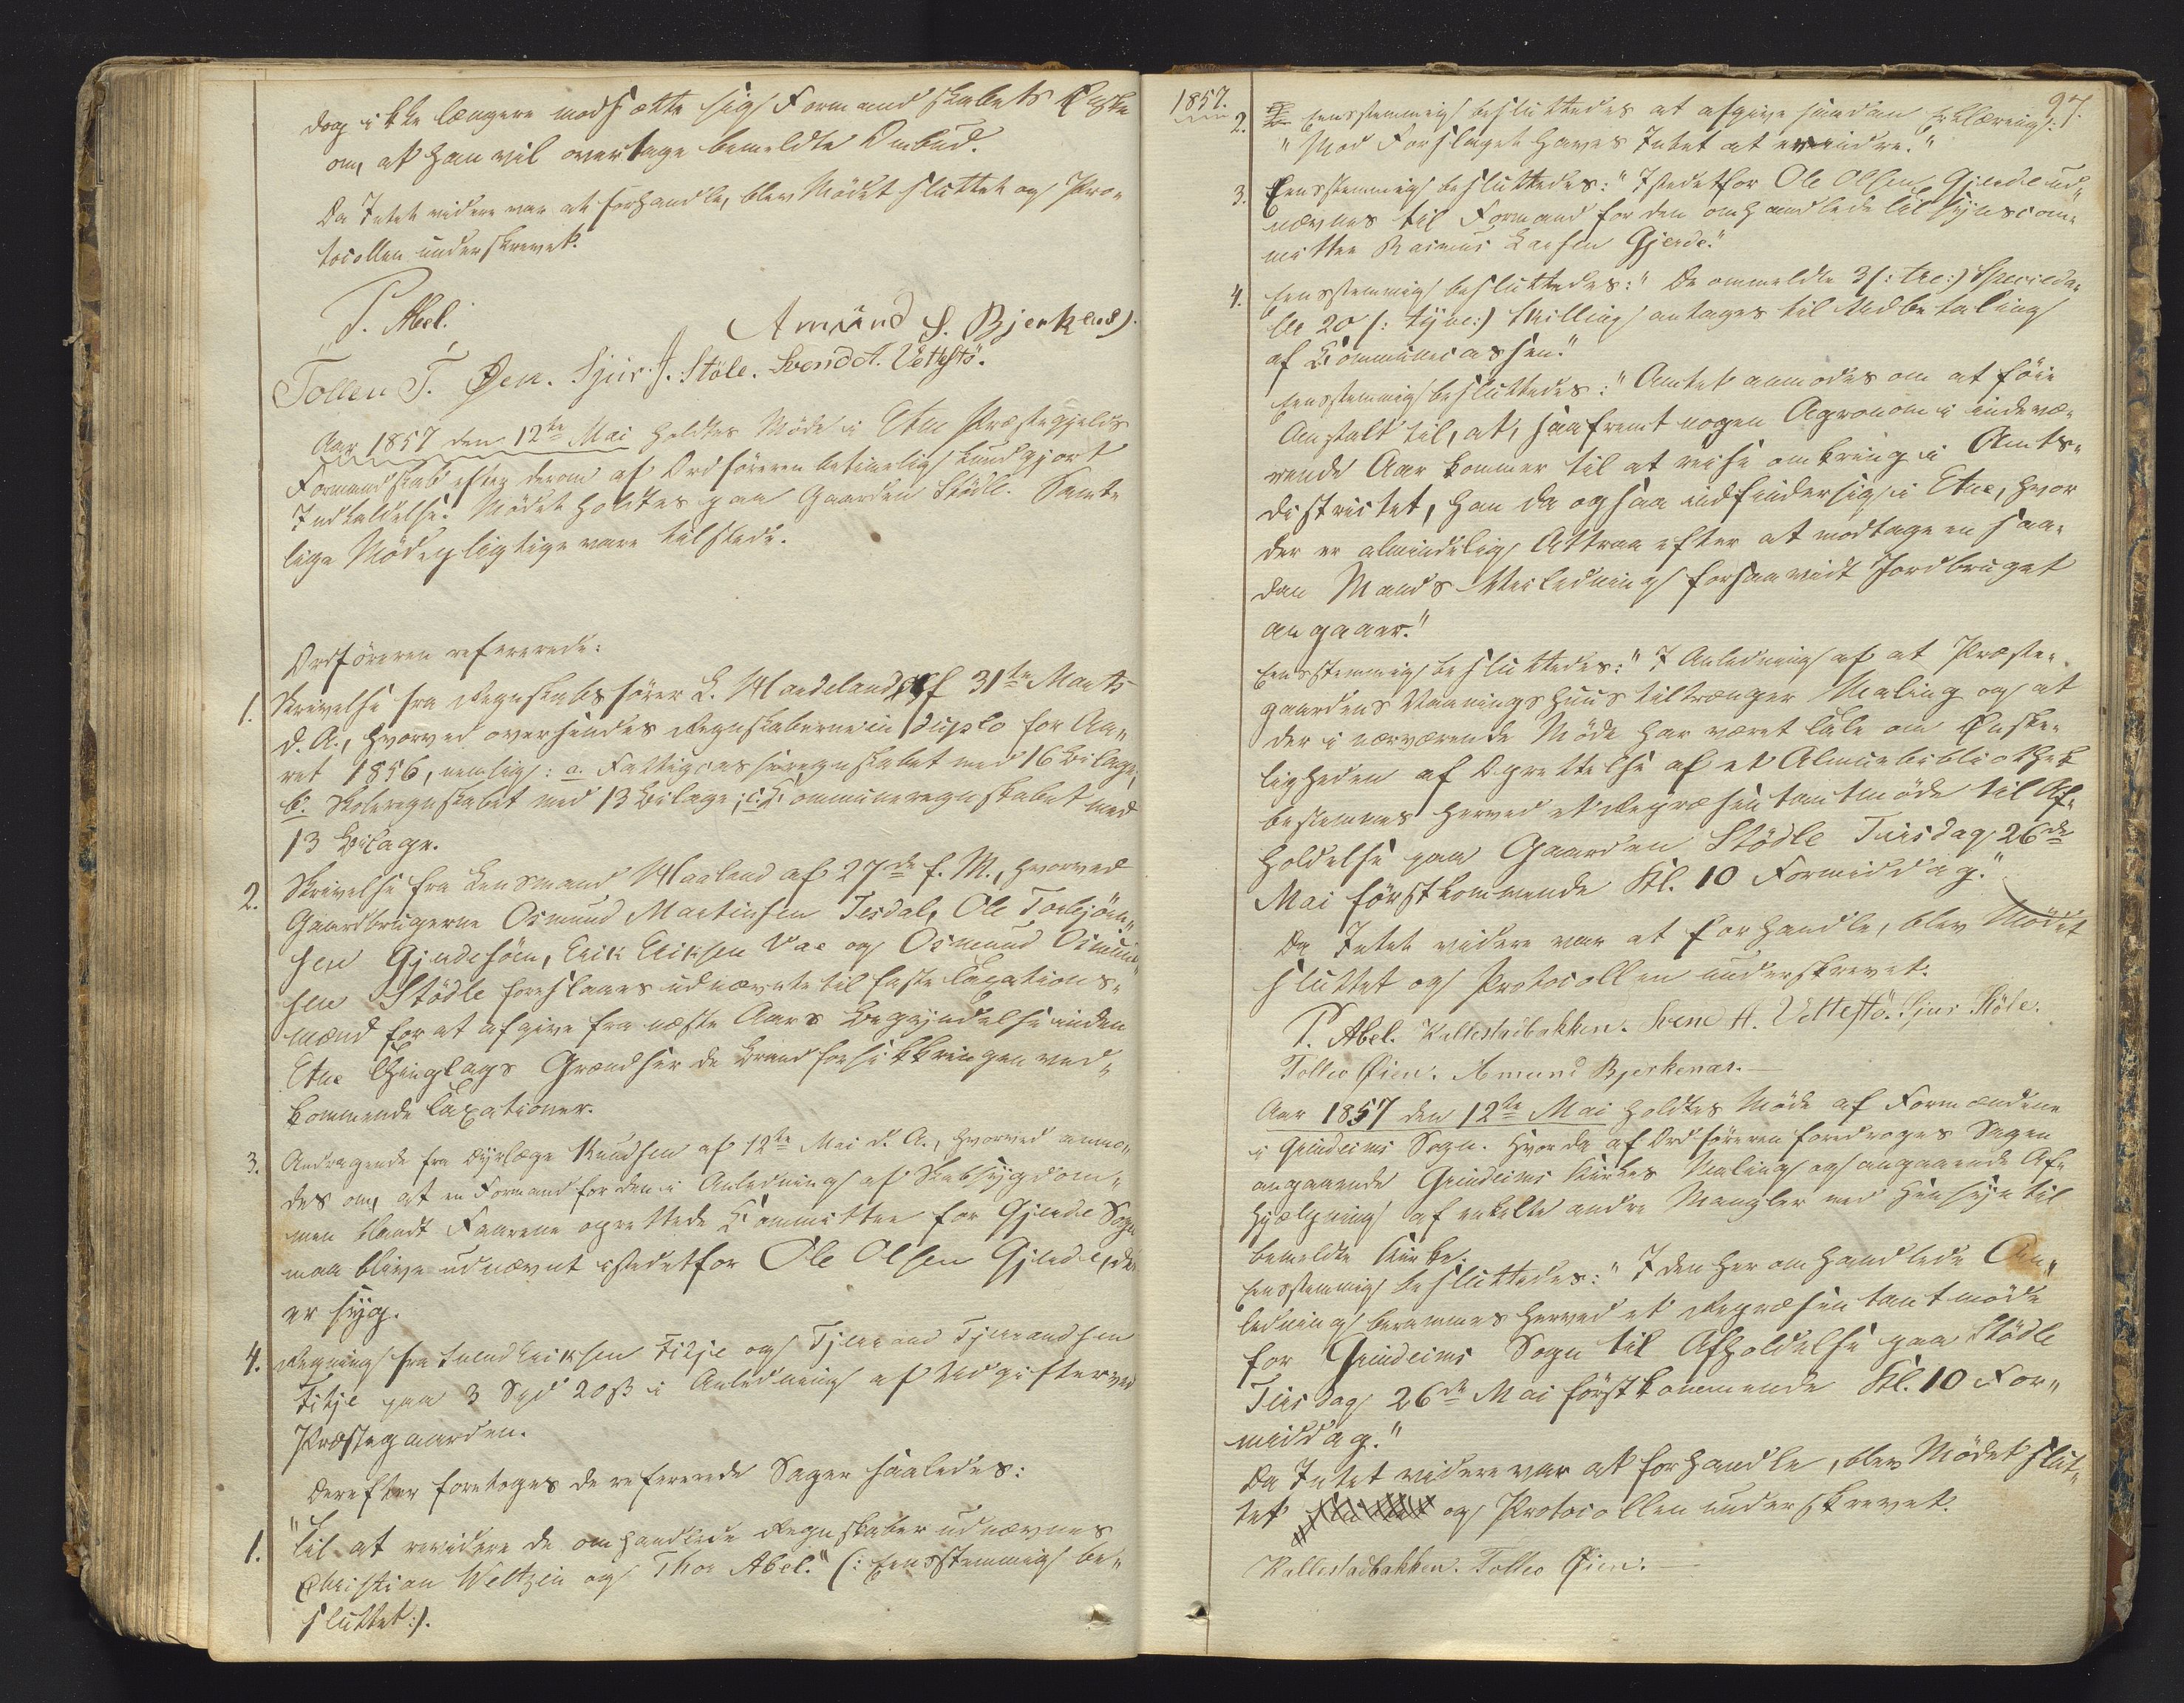 dog ikke længere modsætte sig Formandskabets Ønske
om, at han vil overtage bemeldte Ombud.
Da Intet videre var at forhandle, blev Mödet sluttet og Pro-
tocollen underskrevet.
P. Abel. Amund S. Bjerkenes).
Tollev T. Øen. Sjur J. Støle. Svend A. Vettestö.
Aar 1857 den 12te Mai holdtes Möde i Etne Præstegjelds
Formandskab efter derom af Ordföreren betimelig kundgjort
Indkaldelse. Mödet holdtes paa Gaarden Stödle. Samt-
lige Mödepligtige vare tilstede.
Ordföreren refererede:
1. Skrivelse fra Regnskabsförer L. Haaland af 31te Marts
d. A., hvorved oversendes Regnskaberne in duplo for Aa-
ret 1856, nemlig: a. Fattigcasseregnskabet med 16 Bilage;
b. Skoleregnskabet med 13 Bilage; c. Kommuneregnskabet med
13 Bilage.
2. Skrivelse fra Lensmand Haaland af 27de f. M., hvorved
Gaardbrugerne Osmund Martinsen Tesdal, Ole Torbjörn-
sen Gjerdesöen, Erik Eriksen Vae og Osmund Osmund-
sen Stödle foreslaaes udnævnte til faste Taxations-
mænd for at afgive fra næste Aars Begyndelse inden
Etne Thinglags Grændser de Brandforsikkringen ved-
kommende Taxationer.
3. Andragende fra Dyrlæge Knudsen af 12te Mai d. A., hvorved anmo-
des om, at en Formand for den i Anledning af Skabsygdom-
men blandt Faarene oprettede Kommittee for Gjerde Sogn
maa blive udnævnt istedetfor Ole Olsen Gjerde, der
er syg.
4. Regning fra Svend Eriksen Fitje og Tjerand Tjerandsen
Fitje paa 3 Spd 20 ß i Anledning af Udgifter ved
Præstegaarden.
Derefter foretoges de refererede Sager saaledes:
1. "Til at revidere de omhandlede Regnskaber udnævnes
Christian Weltzin og Thor Abel." (: Eensstemmig be-
sluttet:).
1857.
97.
2. Eensstemmig besluttedes at afgive saadan Erklæring:
"Mod Forslaget haves Intet at erindre."
3. Eensstemmig besluttedes: "Istedetfor Ole Olsen Gjerde ud-
nævnes til Formand for den omhandlede Tilsynscom-
mittee Rasmus Larsen Gjerde."
4. Eensstemmig besluttedes: "De ommeldte 3 (: tre:) Specieda-
ler 20 (: tyve:) Skilling antages til Udbetaling
af Kommunecassen."
Eensstemmig besluttedes: "Amtet anmodes om at föie
Anstalt til, at, saafremt nogen Agronom i indevæ-
rende Aar kommer til at reise omkring i Amts-
districtet, han da ogsaa indfinder sig i Etne, hvor
der er almindelig Attraa efter at modtage en saa-
dan Mands Veiledning forsaavidt Jordbruget
angaaer."
Eensstemmig besluttedes: "I Anledning af at Præste-
gaardens Vaaningshuus tiltrænger Maling og at
der i nærværende Möde har været Tale om Önske-
ligheden af Oprettelse af et Almuebibliothek
bestemmes herved et Repræsentantmöde til Af-
holdelse paa Gaarden Stödle Tirsdag 26de
Mai förstkommende Kl. 10 Formiddag."
Da Intet videre var at forhandle, blev Mödet
sluttet og Protocollen underskrevet.
P. Abel. Kallestadbakken. Svend A. Vettestö. Sjur Støle.
Tollev Öien. Amund Bjerkenas.
Aar 1857 den 12te Mai holdtes Möde af Formændene
i Grindeims Sogn. Hvor da af Ordföreren foredroges Sagen
angaaende Grindeims Kirkes Maling og angaaende Af-
hjælpning af enkelte andre Mangler med Hensyn til
bemeldte Kirke.
Eensstemmig besluttedes: "I den her omhandlede An-
ledning berammes herved et Repræsentantmöde
for Grindeims Sogn til Afholdelse paa Stödle
Tirsdag 26de Mai förstkommende Kl. 10 For-
middag."
Da Intet videre var at forhandle, blev Mödet slut-
tet og Protocollen underskrevet.
Kallestadbakken. Tollev Öien.